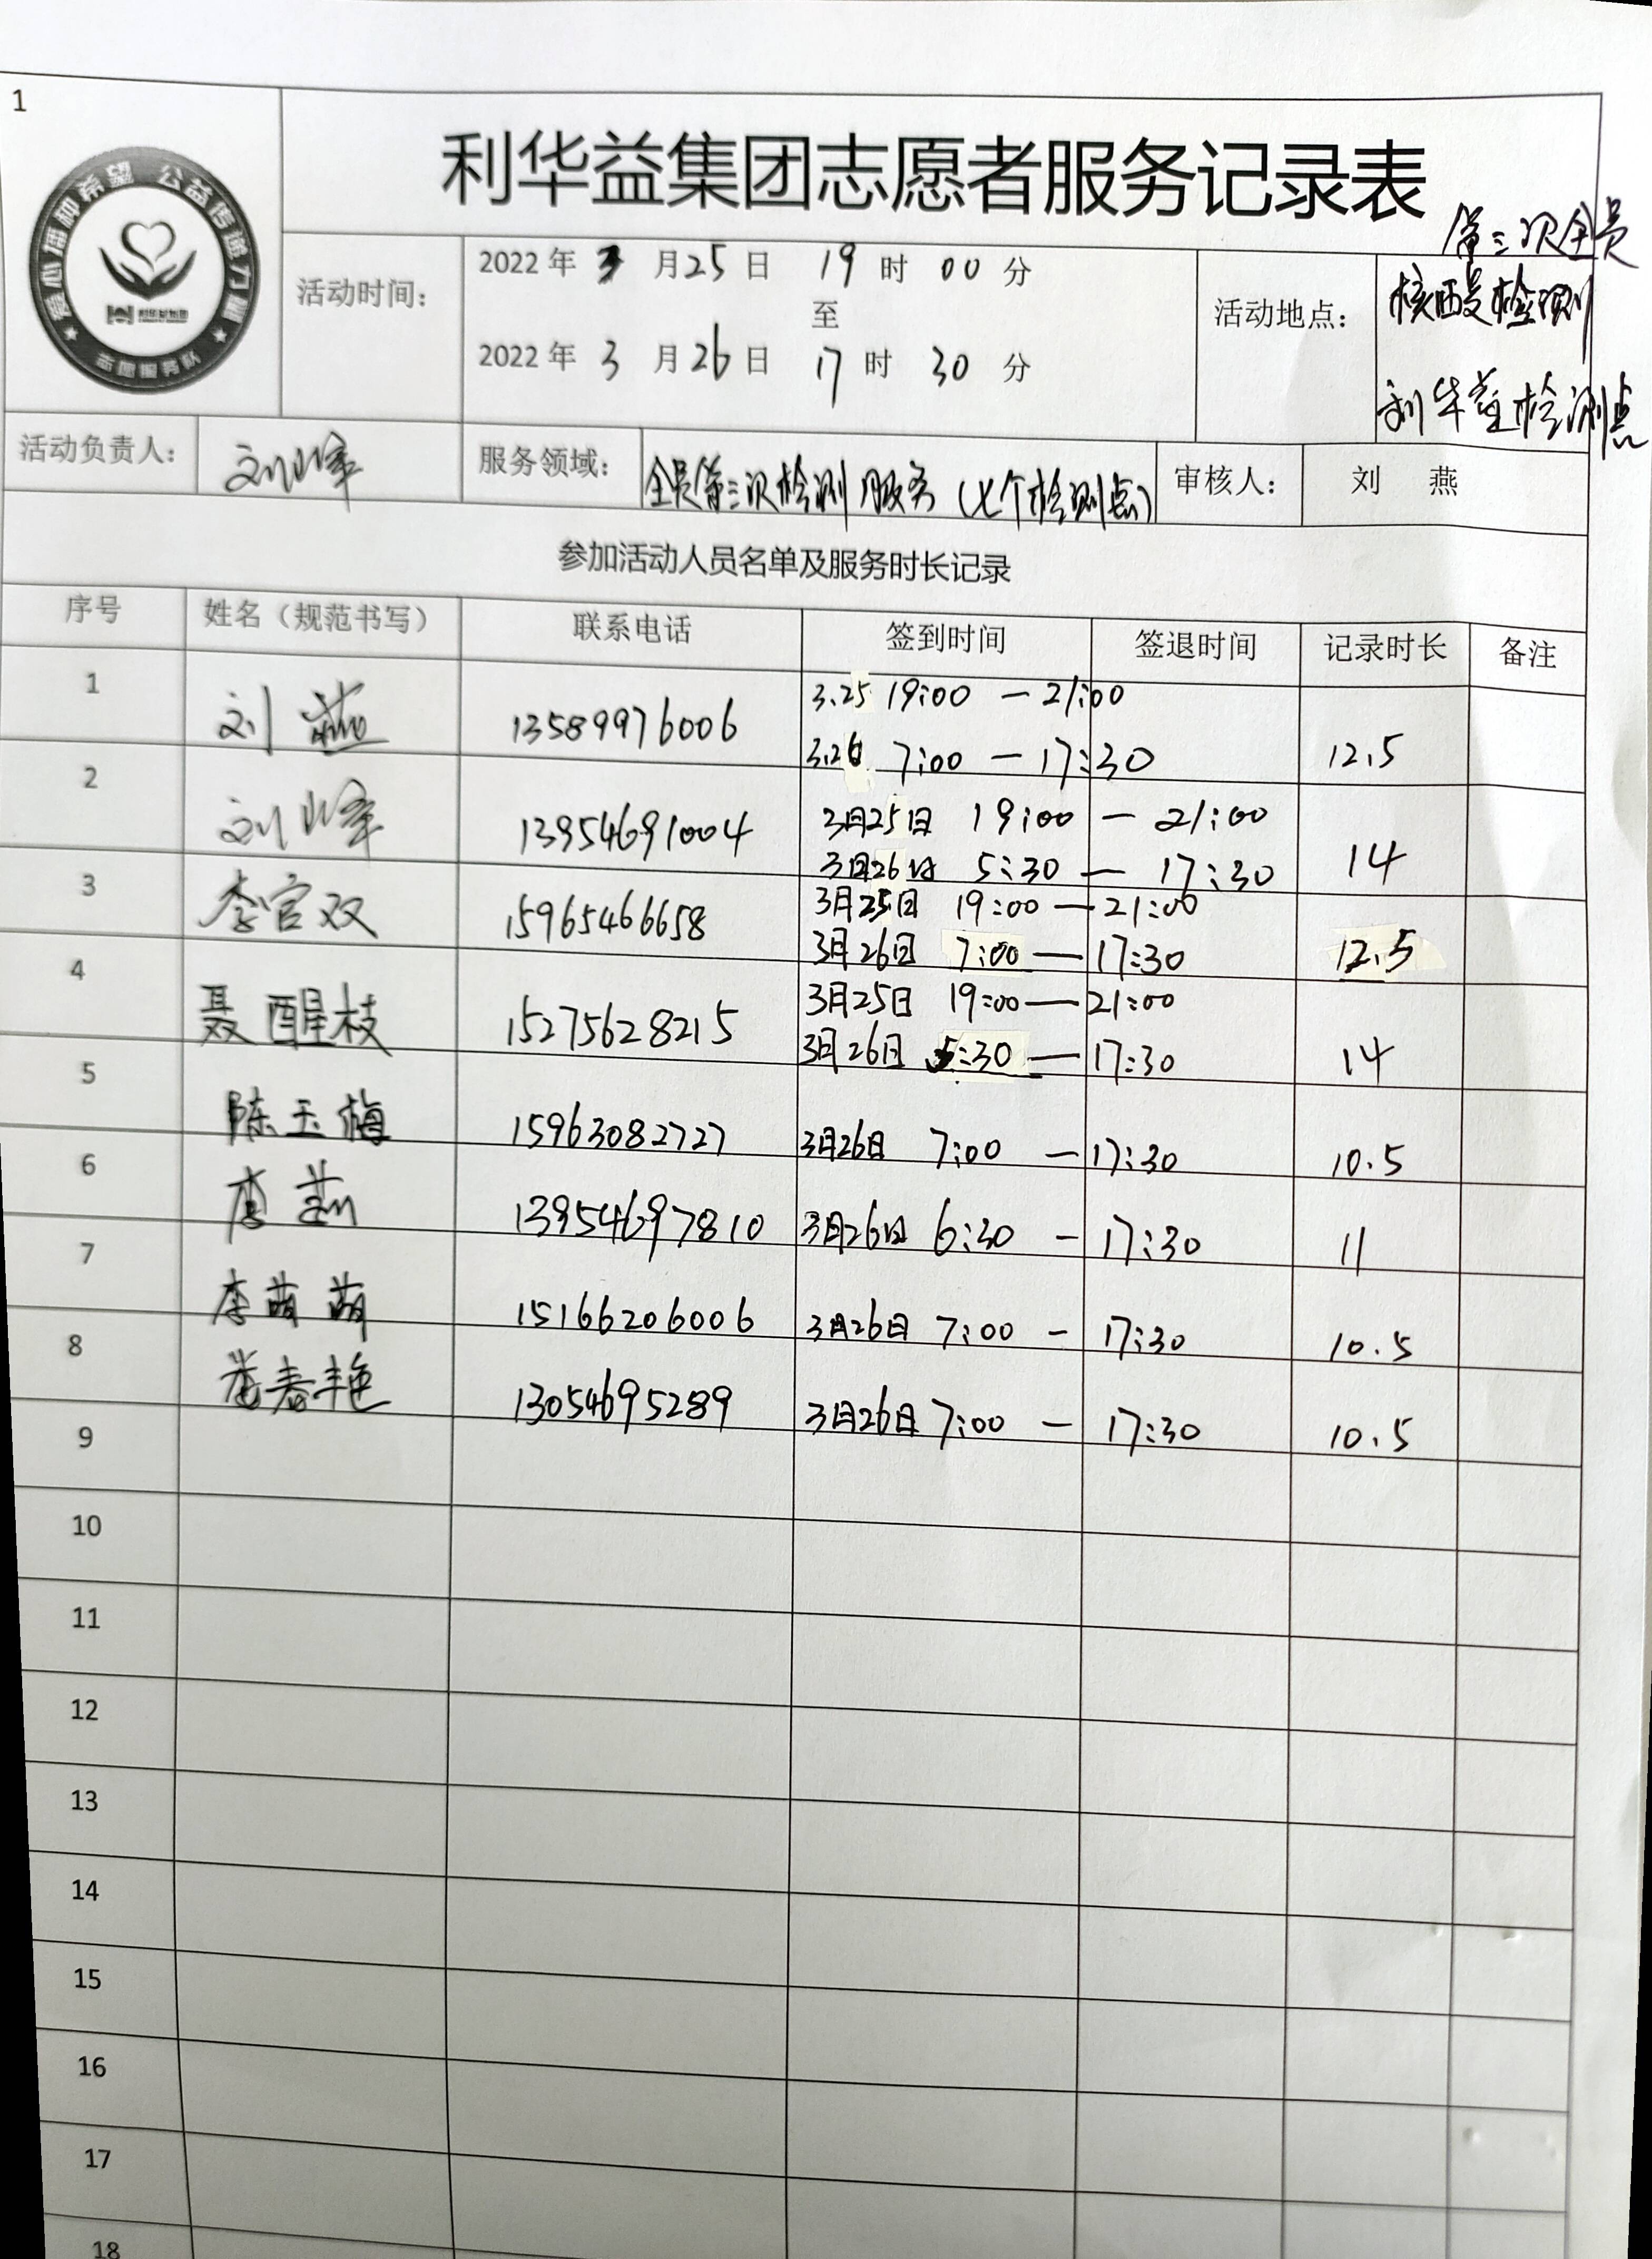 1
爱心播种希望 公益传递力量
志愿服务队
利华益集团志愿者服务记录表
活动时间：
2022 年 3 月 25 日 19 时 00 分
至
2022 年 3 月 26 日 17 时 30 分
活动地点：
第三次全员
核酸检测
利华益检测点
活动负责人：
刘峰
服务领域：
全员第三次检测服务（七个检测点）
审核人：
刘 燕
参加活动人员名单及服务时长记录
序号 姓名（规范书写） 联系电话 签到时间 签退时间 记录时长 备注
1 刘燕 13589976006 3.25 19:00 — 21:00
3.26 7:00 — 17:30 12.5
2 刘峰 13954691004 3月25日 19:00 — 21:00
3月26日 5:30 — 17:30 14
3 李官双 15965466658 3月25日 19:00 — 21:00
3月26日 7:00 — 17:30 12.5
4 聂醒枝 15275628215 3月25日 19:00 — 21:00
3月26日 5:30 — 17:30 14
5 陈玉梅 15963082727 3月26日 7:00 — 17:30 10.5
6 13954697810 3月26日 6:30 — 17:30 11
7 李萌萌 15166206006 3月26日 7:00 — 17:30 10.5
8 春艳 13054695289 3月26日 7:00 — 17:30 10.5
9
10
11
12
13
14
15
16
17
18